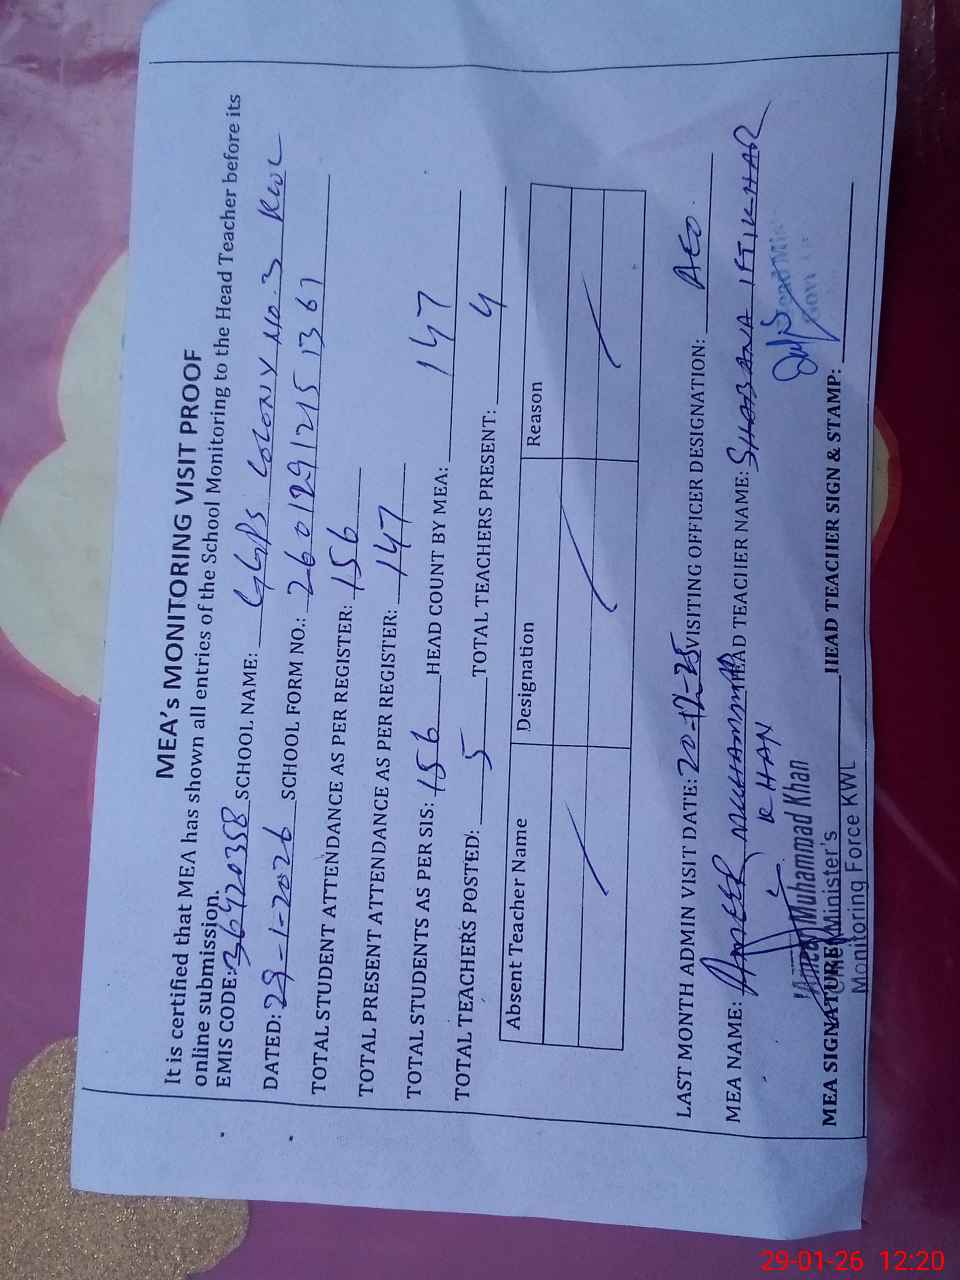 MEA's MONITORING VISIT PROOF
It is certified that MEA has shown all entries of the School Monitoring to the Head Teacher before its
online submission.
EMIS CODE: 36420358 SCHOOL NAME: GGPS COLONY NO. 3 KWL
DATED: 29-1-2026 SCHOOL FORM NO.: 260129121513 61
TOTAL STUDENT ATTENDANCE AS PER REGISTER: 156
TOTAL PRESENT ATTENDANCE AS PER REGISTER: 147
TOTAL STUDENTS AS PER SIS: 156 HEAD COUNT BY MEA: 147
TOTAL TEACHERS POSTED: 5 TOTAL TEACHERS PRESENT: 4
Absent Teacher Name Designation Reason
LAST MONTH ADMIN VISIT DATE: 20-12-25 VISITING OFFICER DESIGNATION: AEO.
MEA NAME: AMEER MUHAMMAD HEAD TEACHER NAME: SHABANA IFTIKHAR
KHAN
Muhammad Khan
MEA SIGNATURE: HEAD TEACHER SIGN & STAMP:
Chief Minister's
Monitoring Force KWL
29-01-26 12:20